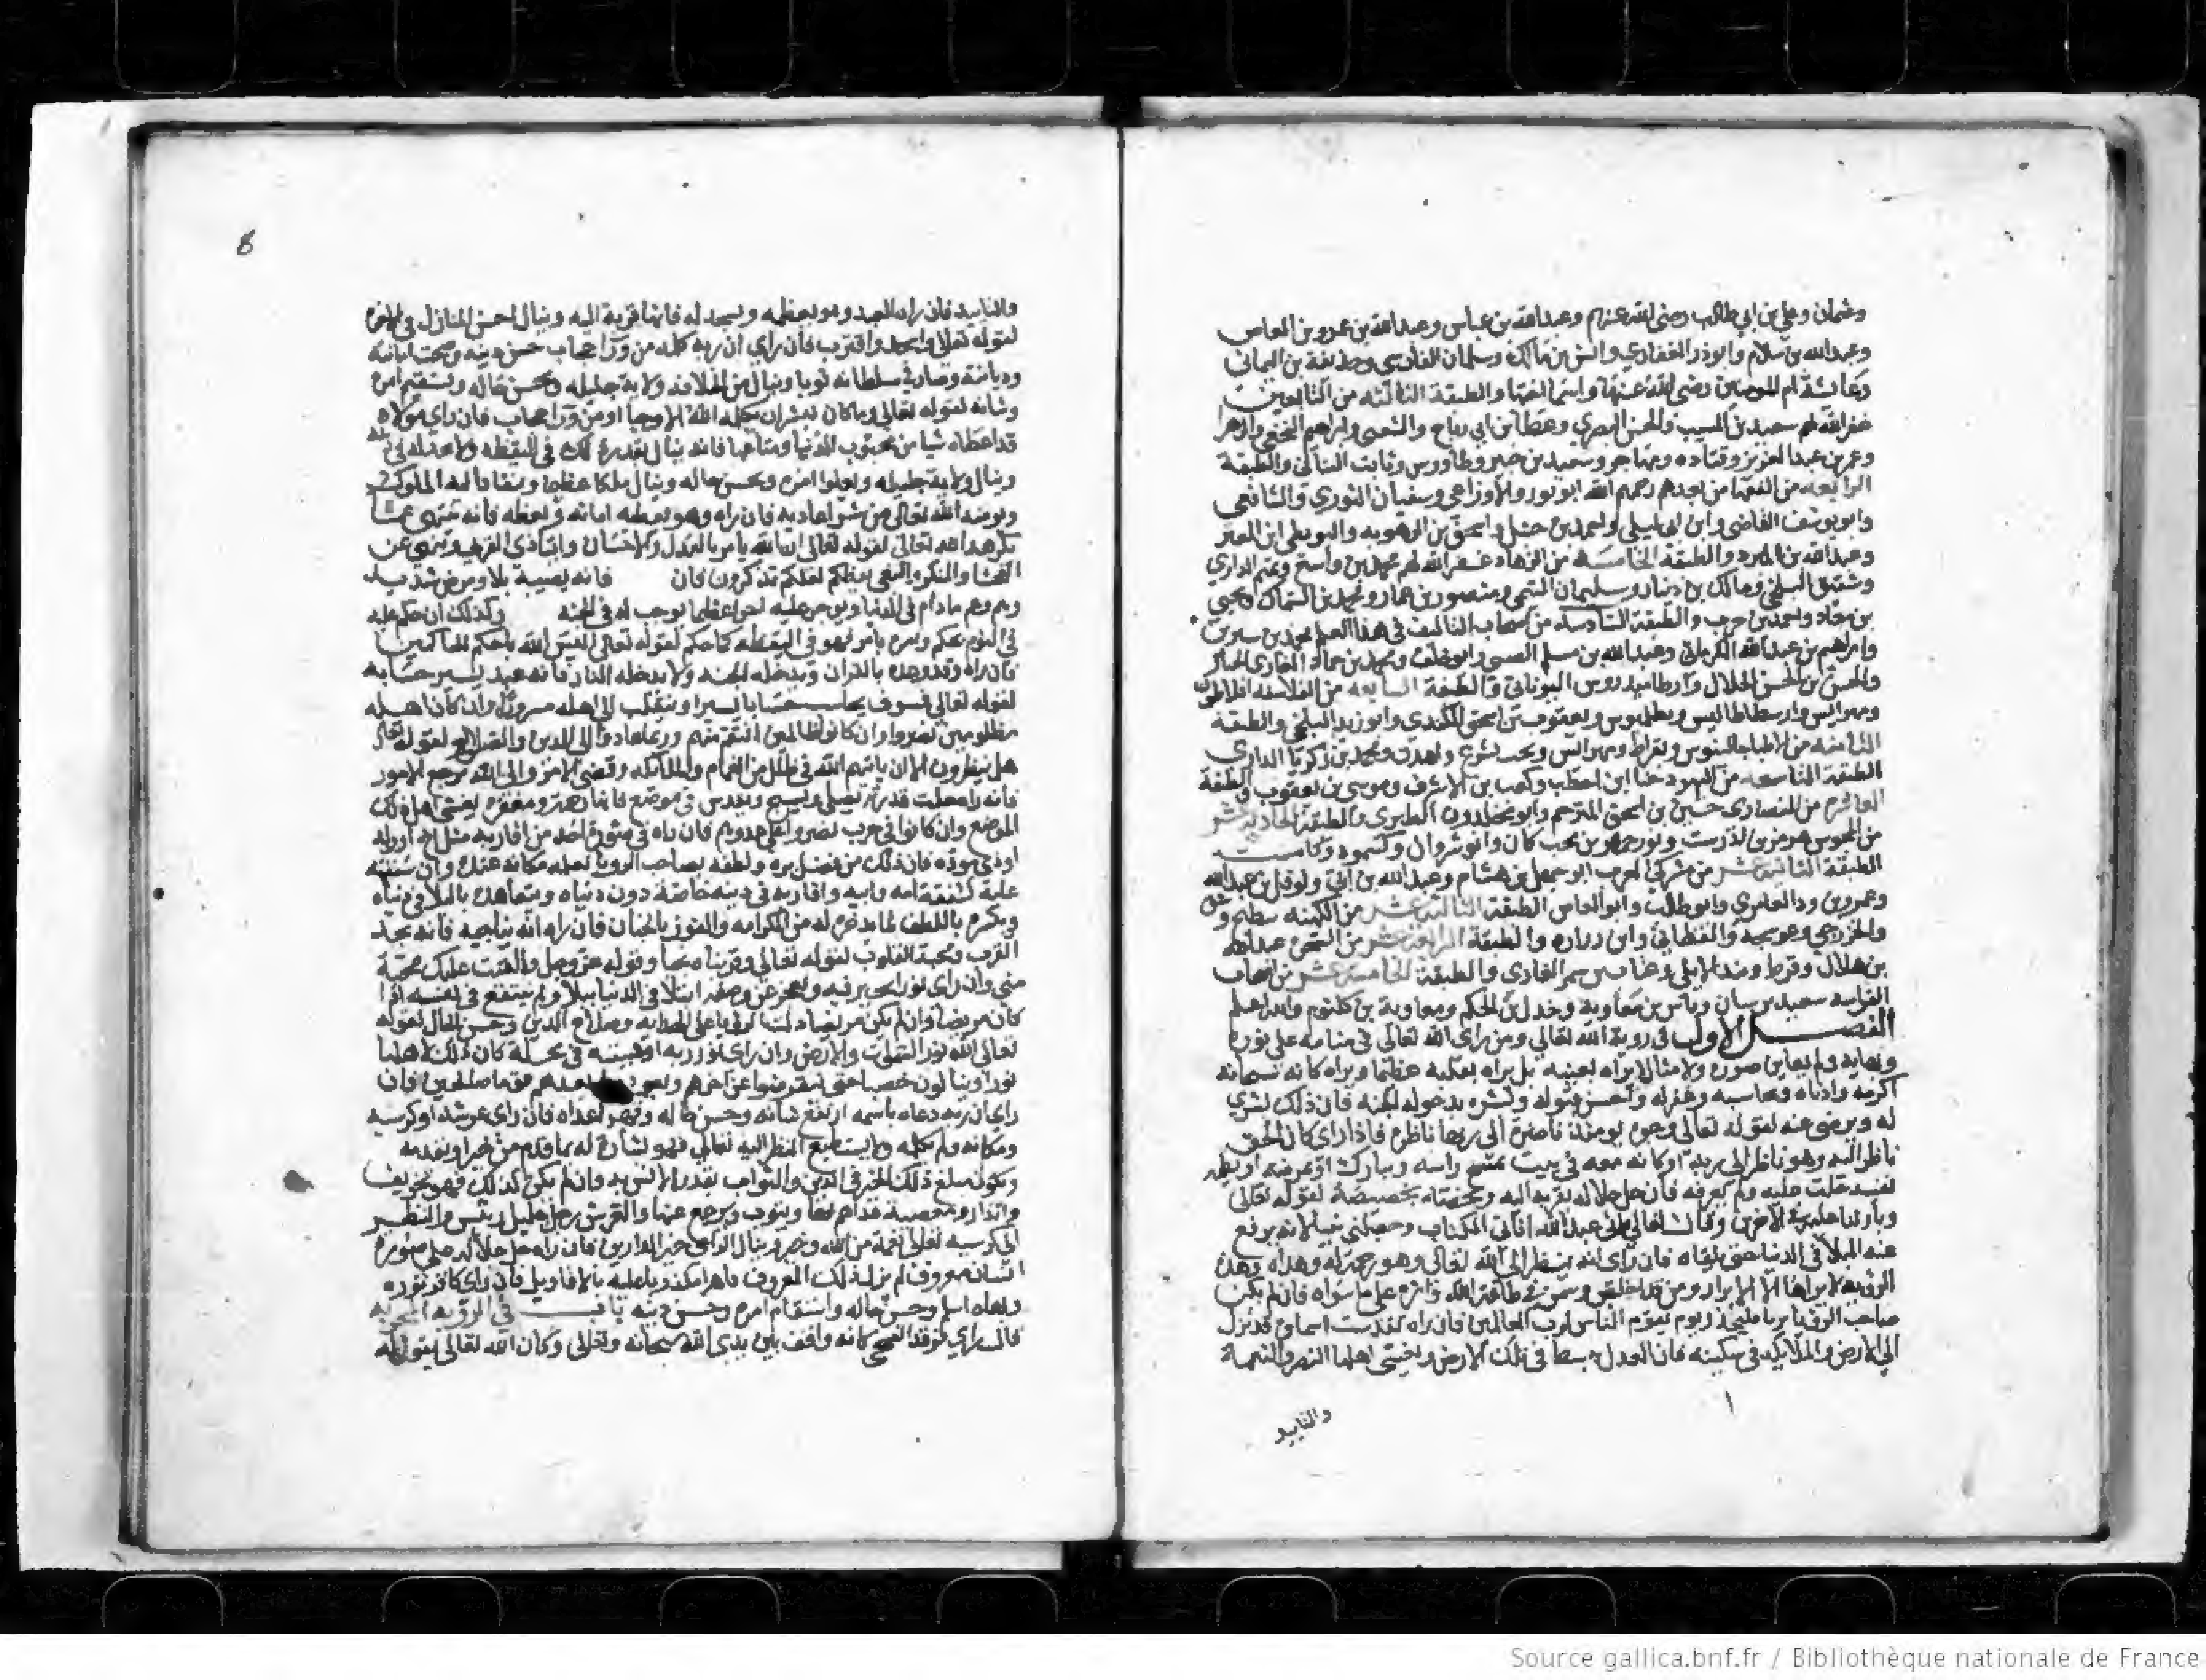 وعثمان وعلي بن ابي طالب رضي الله عنهم وعبد الله بن عباس وعبد الله بن عمرو بن العاص
وعبد الله بن سلام وابو ذر الغفاري وانس بن مالك وسلمان الفارسي وحذيفة بن اليماني
وعائشة ام المومنين رضي الله عنها واسما الفتها والطبقة الثالثه من التابعين
غفر الله لهم سعيد بن المسيب والحسن البصري وعطا بن ابي رباح والشعبي وابراهيم النخعي والزهرا
وعمر بن عبد العزيز وقتاده ومجاهر وسعيد بن جبير وطاووس وثابت البناني والطبقة
الرابعه من الفقها من بعدهم رحمهم الله ابو ثور والاوزاعي وسفيان الثوري والشافعي
وابو يوسف القاضي وابن ابي ليلي واحمد بن حنبل واسحق بن الرهويه والبويطي ابن المعتز
وعبد الله بن المبرد والطبقة الخامسة من الزهاد غفر الله لهم محمد بن واسع وتميم الداري
وشقيق البلخي ومالك بن دينار وسليمان التيمي ومنصور بن عمار ومحمد بن السماك ويحيي
بن معاد واحمد بن حرب والطبقة السادسه من اصحاب التاليف في هذا العلم محمد بن سيرين
وابراهيم بن عبد الله الكرماني وعبد الله بن مسلم وابو خلف ومحمد بن حماد
والحسن بن الحسن الخلال وارطاميدروس اليوناني والطبقة السابعه من الفلاسفه افلاطون
ومهراس وارسطاطاليس وبطليوس ويعقوب بن اسحق الكندي وابو زيد البلخي والطبقة
الثامنه من الاطبا جالينوس وبقراط ومحمد بن زكريا الدازي
الطبقة التاسعه من اليهود حيا ابن اخطب وكعب بن الاشرف وموسي بن يعقوب والطبقة
العاشره من النصارى حسين بن اسحق المترجم وابو مخلدون الطبري والطبقة الحادية عشر
من المجوس هرمز بن اذرست وانوشروان
الطبقة الثانية عشر من مشركي العرب ابو جهل بن هشام وعبد الله بن ابي ونوفل بن عبد الله
وعمرو بن ود العامري وابو طالب وابو العاص الطبقة الثالثة عشر من الكهنه سطيح وشق
والخزرجي وعوسجه والقطامي وابن درباره والطبقة الرابعة عشر من السحره عبد الله
بن هلال وقرط والطبقة الخامسة عشر من اصحاب
الفراسه سعيد بن سنان واياس بن معاوية وجندل بن الحكم ومعاوية بن كلثوم
الفصل الاول في روية الله تعالى ومن راى الله تعالى في منامه على نوره
وبهايه ولم يعاين صوره ولا مثالا يراه بعينه بل يراه بقلبه عظيما ويراه كانه سبحانه
اكرمه وادناه وحاسبه وغفر له وبشره بدخوله الجنه فان ذلك بشرى
له ويرضى عنه لقوله تعالى وجوه يومئذ ناضرة الى ربها ناظره فاذا راى كان الحق
ناظر اليه وهو ناظر الى ربه او كانه معه في بيت
وباركنا عليه في الاخرين وقال تعالى اني عبد الله اتاني الكتاب وجعلني نبيا لانه يرفع
عنه البلا في الدنيا حتى يلقاه فان راى انه ينظر الى الله تعالى وهو رحمة له وهداه وهذه
الرؤية لا يراها الا الابرار
يوم يقوم الناس لرب العالمين فان راه قد نزل
الى الارض والملائكه في سكينه فان العدل يبسط في تلك الارض
والتاييد
8
والتاييد فان راه العبد وهو يعظمه ويسجد له فانها قربة اليه وينال احسن المنازل في الاخره
لقوله تعالى واسجد واقترب فان راي ان ربه كلمه من ورا حجاب حسن دينه وصحت امانته
وديانته وصار في سلطانه قويا وينال من الخلافه ولاية جليله ويحسن حاله ويستقيم امره
وشانه لقوله تعالى وما كان لبشر ان يكلمه الله الا وحيا او من ورا حجاب فان راى مولاه
قد اعطاه شيا من محبوب الدنيا ومتاعها فانه ينال بقدر ذلك في اليقظه
وينال ولاية جليله ويعلوا امره ويحسن حاله وينال ملكا عظيما وتنقاد اليه الملوك
ويومنه الله تعالى من شر اعاديه فان راه وهو يعظه فانه ينتهي عما
يكرهه الله تعالى لقوله تعالى ان الله يامر بالعدل والاحسان وايتاء ذي القربى وينهي عن
الفحشا والمنكر والبغي يعظكم لعلكم تذكرون فان فانه يصيبه بلا ومرض شديد
وهم وغم ما دام في الدنيا ويوجر عليه اجرا عظيما يوجب له في الجنه وكذلك ان حكم عليه
في النوم بحكم وامره بامر فهو في اليقظه كما حكم لقوله تعالى اليس الله باحكم الحاكمين
فان راه وقد وعده بالقران وبدخله الجنه ولا يدخله النار فانه عبد يسير حسابه
لقوله تعالى فسوف يحاسب حسابا يسيرا وينقلب الى اهله مسرورا وان كان اهله
مظلومين نصروا وان كانوا ظالمين انتقم منهم وربما عادوا الى الدين والصلاح لقوله تعالى
هل ينظرون الا ان ياتيهم الله في ظلل من الغمام والملائكه وقضي الامر والى الله ترجع الامور
فانه راه جلت قدرته يصلي ويسبح ويقدس في موضع فانها رحمة ومغفره يغشى اهل ذلك
الموضع وان كانوا في حرب نصروا على عدوهم فان راه في صورة احد من اقاربه مثل اخ او والد
او ذي موده فان ذلك من فضل بره ولطفه بصاحب الرويا
عليه كشفقة امه وابيه واقاربه في دينه خاصة دون دنياه ويتعاهده بالبلا في دنياه
ويكرم باللطف لما يدخره له من الكرامه والفوز بالجنان فان راه انه يناجيه فانه يجد
القرب ومحبة القلوب لقوله تعالى وقربناه نجيا وقوله عز وجل والقيت عليك محبة
مني وان راى نورا تحير فيه وعجز عن وصفه ابتلاه في الدنيا ببلا ولم ينتفع في نفسه
كان مريضا وان لم يكن مريضا وصلاح الدين وحسن الحال لقوله
تعالى الله نور السموات والارض وان راى نور ربه او هيبته في محلة كان ذلك لاهلها
نورا وينالون خصبا فان
راى ان ربه دعاه باسمه ارتفع شانه وحسن حاله وقهر اعداه فان راى عرشه او كرسيه
ومكانه ولم يكلمه ولا يستطيع النظر اليه تعالى فهو بشارة له بما قدم من خير او يقدمه
ويكون مبلغ ذلك الخير في الدين والثواب بقدر الانس به وان لم يكن كذلك فهو تخويف
وانذار ومعصية قد اهم بها ويتوب ويرجع عنها والعرش رجل جليل رئيس والنظر
الى كرسيه تعالى نعمة من الله وخير وينال الراي خير الدارين فان راه جل جلاله على صورة
انسان معروف لم يزل ذلك المعروف قاهرا
وحسن حاله واستقام امره وحسن دينه باب في الرؤيه المجربه
قال راى كانه واقف بين يدي الله سبحانه وتعالى وكان الله تعالى يقول له
Source gallica.bnf.fr / Bibliothèque nationale de France